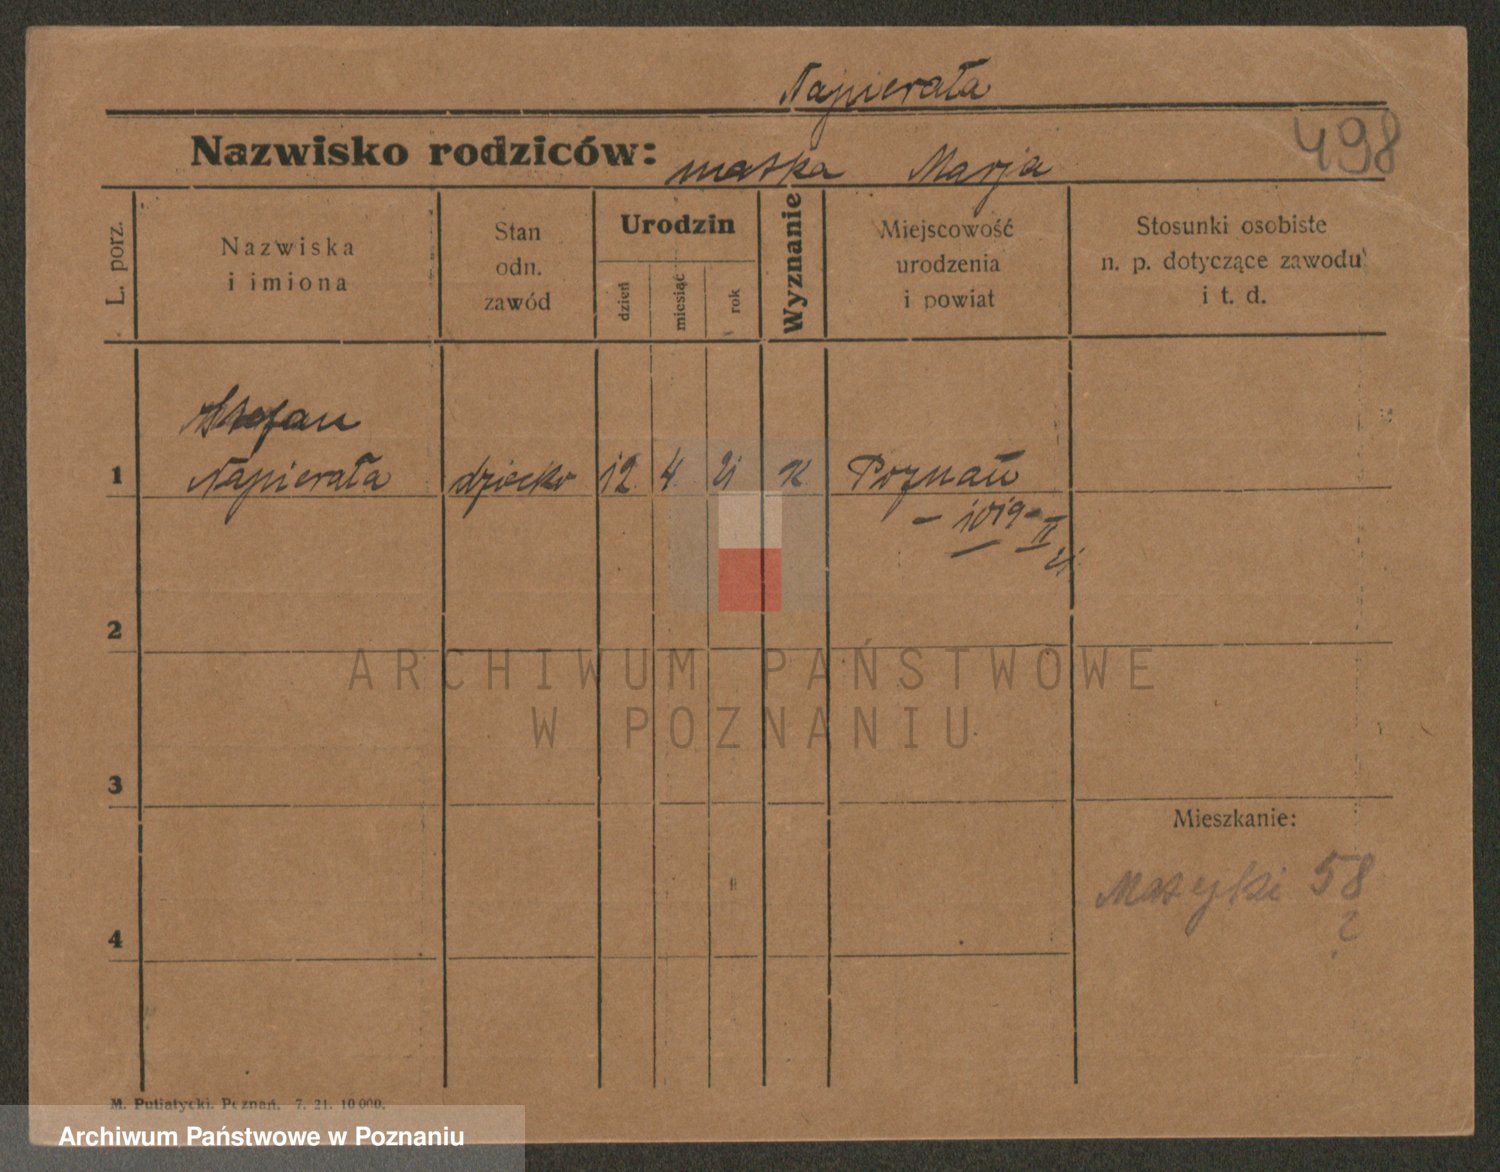 Napierała
498
Nazwisko rodziców: matka Marja
L. porz.
Nazwiska
i imiona
Stan
odn.
zawód
Urodzin
dzień
miesiąc
rok
Wyznanie
Miejscowość
urodzenia
i powiat
Stosunki osobiste
n. p. dotyczące zawodu
i t. d.
Stefan
1 Napierała dziecko 12 4 21 K Poznań
- 1019 - II
21
2
ARCHIWUM PAŃSTWOWE
W POZNANIU
3
Mieszkanie:
Matejki 58
?
4
M. Putiatycki. Poznań. 7. 21. 10 000.
Archiwum Państwowe w Poznaniu